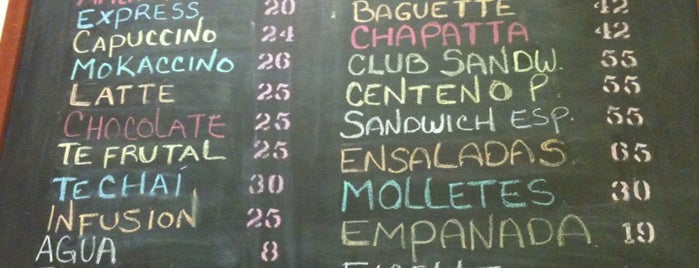 EXPRESS 20
CAPUCCINO 24
MOKACCINO 26
LATTE 25
CHOCOLATE 25
TE FRUTAL 25
TE CHAÍ 30
INFUSION 25
AGUA 8
BAGUETTE 42
CHAPATTA 42
CLUB SANDW. 55
CENTENO P. 55
SANDWICH ESP. 55
ENSALADAS. 65
MOLLETES 30
EMPANADA 19